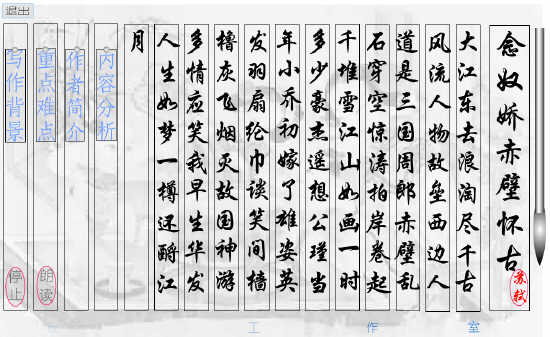 退出
念奴娇赤壁怀古
苏轼
大江东去浪淘尽千古
风流人物故垒西边人
道是三国周郎赤壁乱
石穿空惊涛拍岸卷起
千堆雪江山如画一时
多少豪杰遥想公瑾当
年小乔初嫁了雄姿英
发羽扇纶巾谈笑间樯
橹灰飞烟灭故国神游
多情应笑我早生华发
人生如梦一樽还酹江
月
内容分析
作者简介
重点难点
写作背景
朗读
停止
工作室